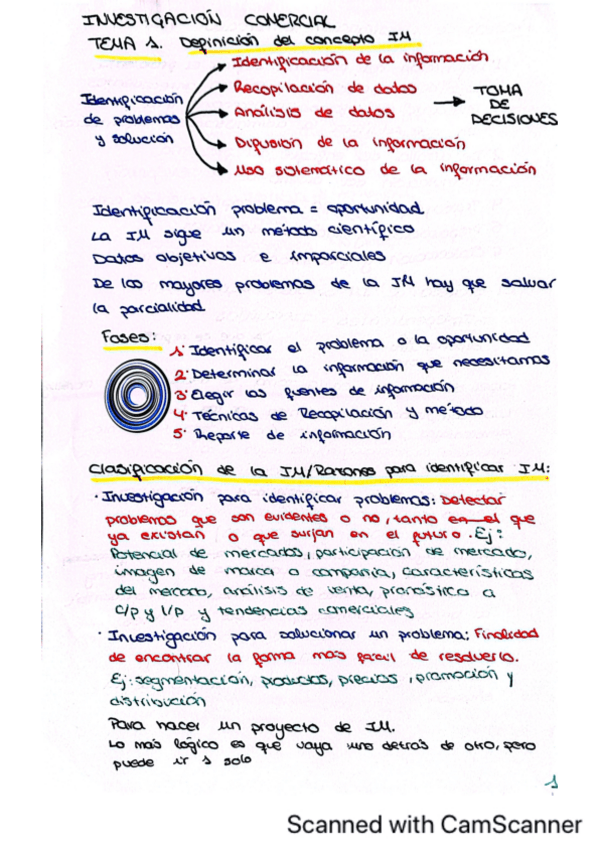 INVESTIGACIÓN COMERCIAL
TEMA 1. Definición del concepto IM
Identificación de la información
Recopilación de datos
Análisis de datos
Difusión de la información
Uso sistemático de la información
Identificación
de problemas
y solución
TOMA
DE
DECISIONES
Identificación problema = oportunidad
La IM sigue un método científico
Datos objetivos e imparciales
De los mayores problemas de la IM hay que salvar
la parcialidad
Fases:
1. Identificar el problema o la oportunidad
2. Determinar la información que necesitamos
3. Elegir las fuentes de información
4. Técnicas de Recopilación y método
5. Reporte de información
Clasificación de la IM/Razones para identificar IM:
· Investigación para identificar problemas: Detectar
problemas que son evidentes o no, tanto en el que
ya existan o que surjan en el futuro. Ej:
Potencial de mercados, participación de mercado,
imagen de marca o compañía, características
del mercado, análisis de venta, pronóstico a
c/p y l/p y tendencias comerciales
· Investigación para solucionar un problema: Finalidad
de encontrar la forma más fácil de resolverlo.
Ej: segmentación, productos, precios, promoción y
distribución
Para hacer un proyecto de IM.
Lo más lógico es que vaya uno detrás de otro, pero
puede ir 1 solo
1
Scanned with CamScanner